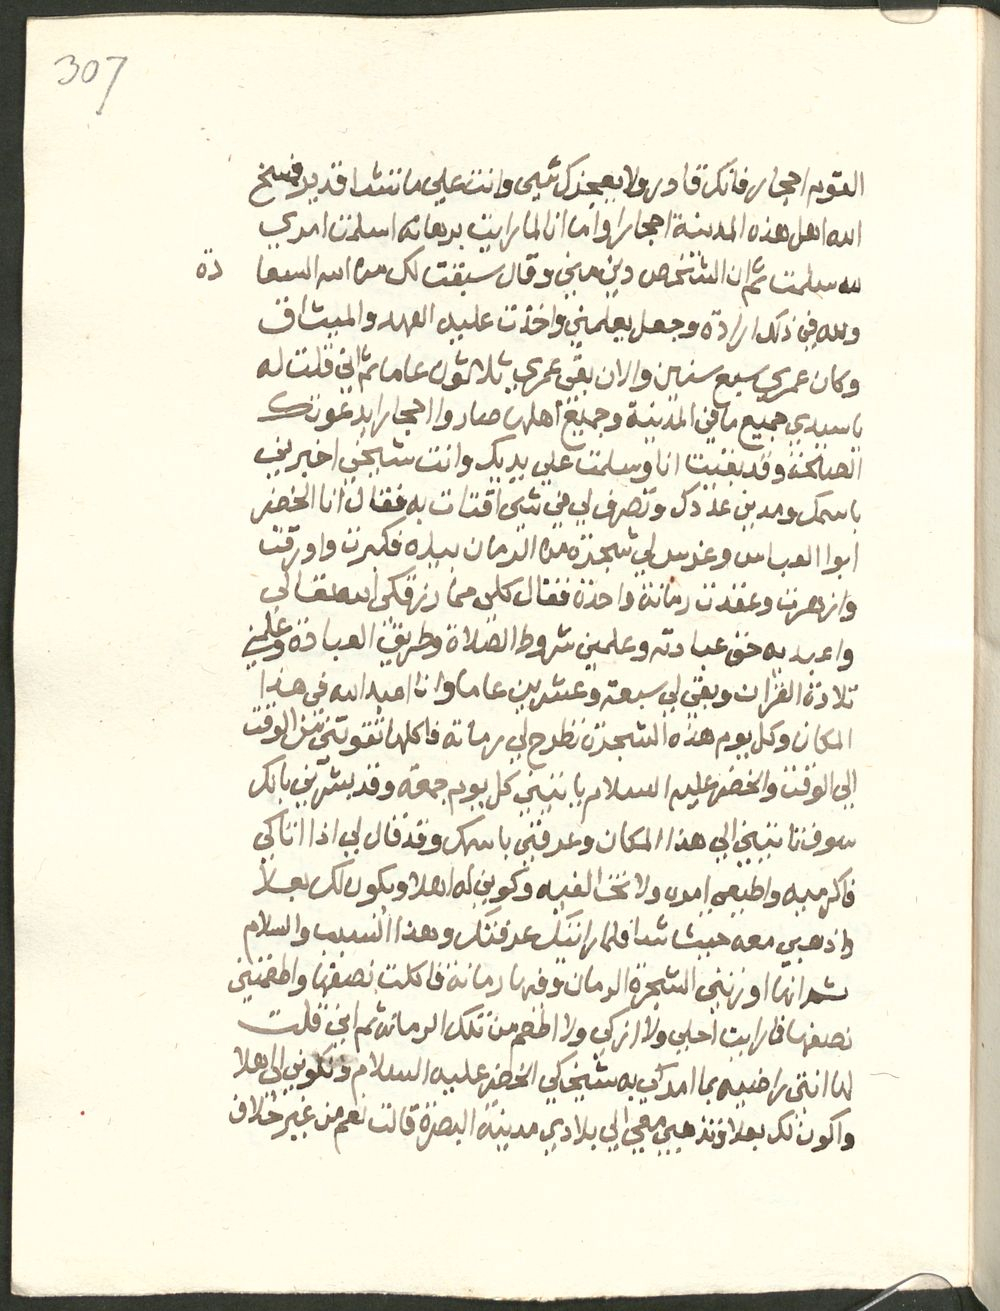 307
القوم احجار فانك قادر ولا يعجزك شيى وانت علي ما تشا قدير فمسخ
الله اهل هذه المدينة احجارا واما انا لما رايت برهانه اسلمت امري
لله سلمت ثم ان الشخص دني مني وقال سبقت لك من الله السعا دة
ولله في ذلك ارادة وجعل يعلمني واخذت عليه العهد والميثاق
وكان عمري سبع سنين والان بقي عمري ثلاثون عاما ثم اني قلت له
يا سيدي جميع ما في المدينة وجميع اهلها صاروا احجارا بدعوتك
الصالحة وقد بقيت انا وسلمت علي يديك وانت شيخي اخبرني
باسمك ومدني عددك وتصرف لي في شي اقتات به فقال انا الخضر
ابوا العباس وغرس لي شجرة من الرمان بيده فكبرت واورقت
وازهرت وعقدت رمانة واحدة فقال كلي مما رزقكي الله تعالي
واعبديه حق عبادته وعلمني شروط الصلاة وطريق العبادة وعلمني
تلاوة القران وبقي لي سبعة وعشرين عاما وانا اعبد الله في هذا
المكان وكل يوم هذه الشجرة تطرح لي رمانة فاكلها تقوتني من الوقت
الى الوقت والخضر عليه السلام ياتيني كل يوم جمعة وقد بشرني بانك
سوف تاتيني الي هذا المكان وعرفني باسمك وقد قال لي اذا اتاكي
فاكرميه واطيعي امره ولا تخالفيه وكوني له اهلا ويكون لكي بعلا
واذهبي معه حيث شا فلما رايتك عرفتك وهذا السبب والسلام
ثم انها اورتني الشجرة الرمان وفيها رمانة فاكلت نصفها واطعمتني
نصفها فما رايت احلي ولا ازكي ولا اطعم من تلك الرمانة ثم اني قلت
لها انتي راضيه بما امركي به شيخكي الخضر عليه السلام وتكوني لي اهلا
واكون لك بعلا وتذهبي معي الي بلادي مدينة البصرة قالت نعم من غير خلاف